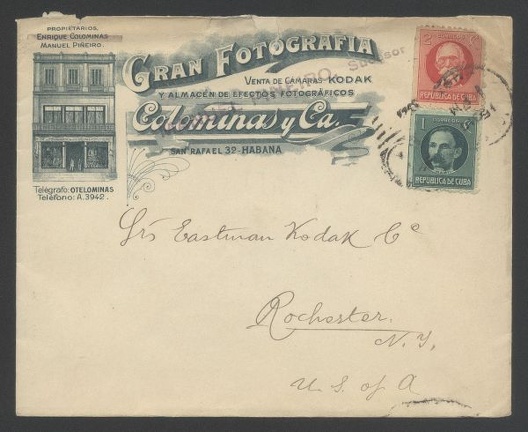 PROPIETARIOS.
ENRIQUE COLOMINAS
MANUEL PIÑEIRO.
GRAN FOTOGRAFIA
Sucesor
VENTA DE CAMARAS KODAK
Y ALMACÉN DE EFECTOS FOTOGRÁFICOS
Colominas y Ca.
SAN RAFAEL 32-HABANA
Telégrafo: OTELOMINAS
Teléfono: A.3942.
2
REPUBLICA DE CUBA
1 c
REPUBLICA DE CUBA
Srs Eastman Kodak Cº
Rochester.
N. Y.
U. S. of A